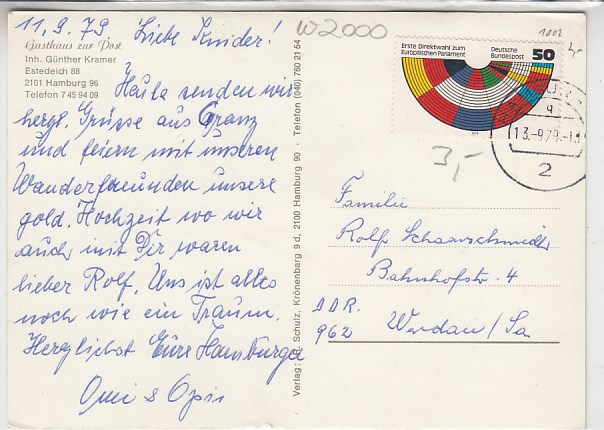 11.9.79 Liebe Kinder!
Gasthaus zur Post
Inh. Günther Kramer
Estedeich 88
2101 Hamburg 96
Telefon 7 45 94 09
Heute senden wir
herzl. Grüsse aus Cranz
und feiern mit unseren
Wanderfreunden unsere
gold. Hochzeit wo wir
auch mit Dir waren
lieber Rolf, Uns ist alles
noch wie ein Traum.
Herzlichst Eure Hamburger
Omi & Opi
Verlag: Schulz, Krönenbarg 9 d, 2100 Hamburg 90 · Telefon (040) 760 21 54
W2000
1002
Erste Direktwahl zum
Europäischen Parlament
Deutsche
Bundespost
50
3,-
13.-9.79.-13
2
Familie
Rolf Schaarschmidt
Bahnhofstr. 4
DDR.
962 Werdau/Sa